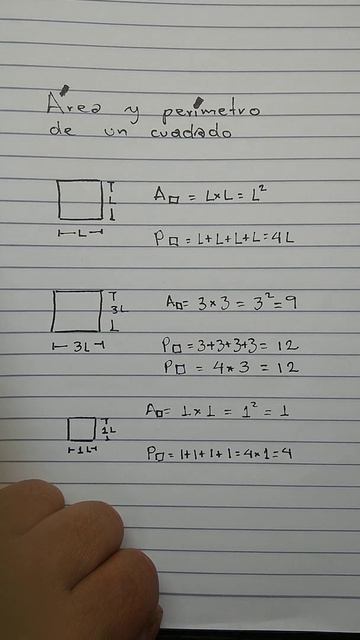 Área y perímetro
de un cuadrado
L
L
A□ = L×L = L²
P□ = L+L+L+L=4L
3L
3L
A□= 3×3 = 3²=9
P□=3+3+3+3= 12
P□ = 4×3 = 12
1L
1L
A□= 1×1 = 1² = 1
P□=1+1+1+1=4×1=4